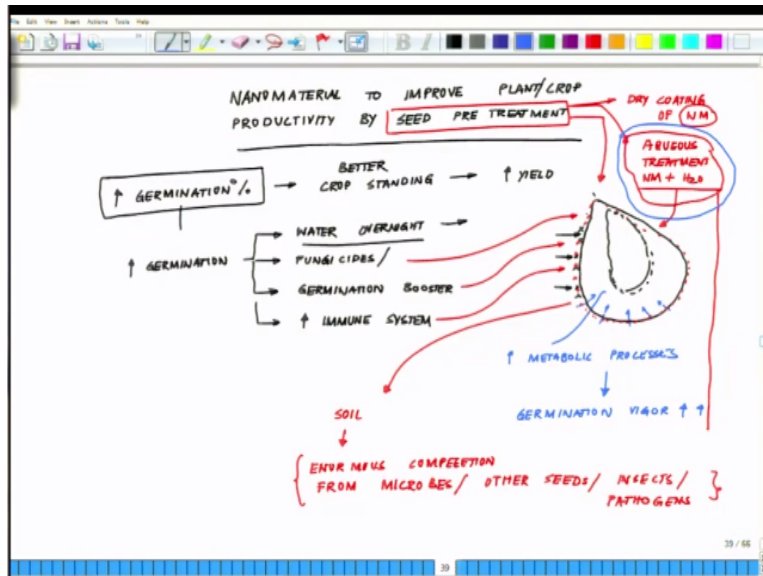 File Edit View Insert Actions Tools Help
NANOMATERIAL TO IMPROVE PLANT/CROP
PRODUCTIVITY BY SEED PRE TREATMENT
DRY COATING
OF NM
AQUEOUS
TREATMENT
NM + H2O
↑ GERMINATION % → BETTER
CROP STANDING → ↑ YIELD
↑ GERMINATION
WATER OVERNIGHT →
FUNGICIDES/
GERMINATION BOOSTER
↑ IMMUNE SYSTEM
↑ METABOLIC PROCESSES
GERMINATION VIGOR ↑ ↑
SOIL
ENORMOUS COMPEETION
FROM MICROBES/ OTHER SEEDS/ INSECTS/
PATHOGENS
39 / 66
39